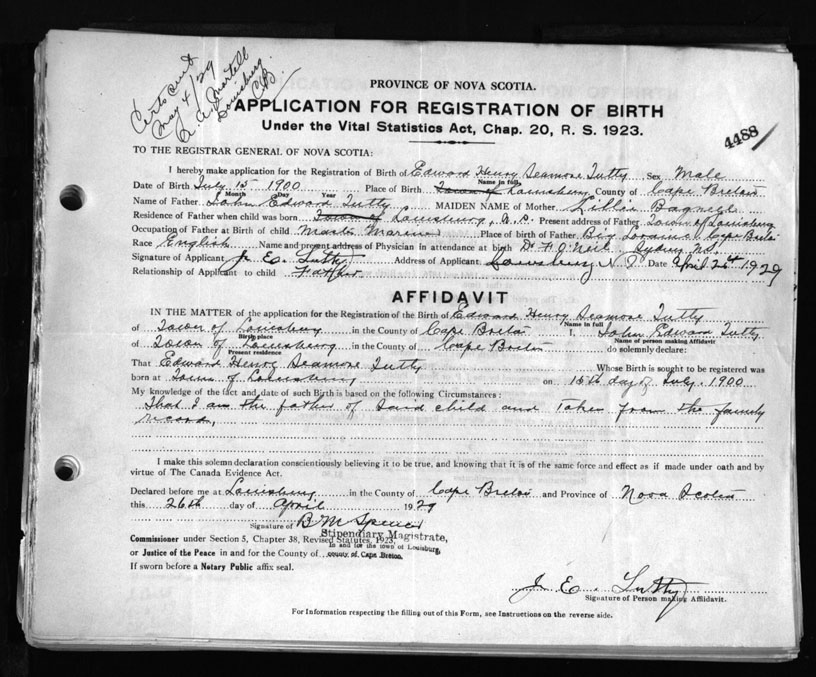 Certs sent
May 4/29
A. A. Martell
Louisburg
C.B.
PROVINCE OF NOVA SCOTIA.
APPLICATION FOR REGISTRATION OF BIRTH
Under the Vital Statistics Act, Chap. 20, R. S. 1923.
4488
TO THE REGISTRAR GENERAL OF NOVA SCOTIA:
I hereby make application for the Registration of Birth of Edward Henry Seamore Tutty Sex Male
Name in full
Date of Birth July 15 1900 Place of Birth Town of Louisburg County of Cape Breton
Month Day Year
Name of Father John Edward Tutty MAIDEN NAME of Mother Lillie Bagnell
Residence of Father when child was born Town of Louisburg, N.S. Present address of Father Town of Louisburg
Occupation of Father at Birth of child Master Mariner Place of birth of Father Big Loraine Cape Breton
Race English Name and present address of Physician in attendance at birth Dr F O'Neil, Sydney N.S.
Signature of Applicant J. E. Tutty Address of Applicant Louisburg N.S. Date April 26th 1929
Relationship of Applicant to child Father
AFFIDAVIT
IN THE MATTER of the application for the Registration of the Birth of Edward Henry Seamore Tutty
Name in full
of Town of Louisburg in the County of Cape Breton I, John Edward Tutty
Birth place Name of person making Affidavit
of Town of Louisburg in the County of Cape Breton do solemnly declare:
Present residence
That Edward Henry Seamore Tutty Whose Birth is sought to be registered was
born at Town of Louisburg on 15th day of July 1900
My knowledge of the fact and date of such Birth is based on the following Circumstances:
That I am the father of said child and Taken from the family
record,
I make this solemn declaration conscientiously believing it to be true, and knowing that it is of the same force and effect as if made under oath and by
virtue of The Canada Evidence Act.
Declared before me at Louisburg in the County of Cape Breton and Province of Nova Scotia
this 26th day of April 1929
Signature of B M Spencer
Stipendiary Magistrate,
Commissioner under Section 5, Chapter 38, Revised Statutes, 1923,
in and for the town of Louisburg,
or Justice of the Peace in and for the County of county of Cape Breton.
If sworn before a Notary Public affix seal.
J. E. Tutty
Signature of Person making Affidavit.
For Information respecting the filling out of this Form, see Instructions on the reverse side.